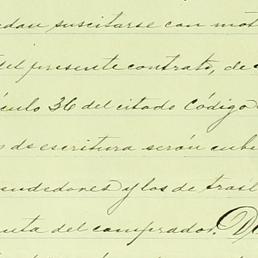 edan suscitarse con mot
del presente contrato, de
culo 36 del citado Código
s de escritura serán cubi
endedores y los de trasl
uenta del comprador. D